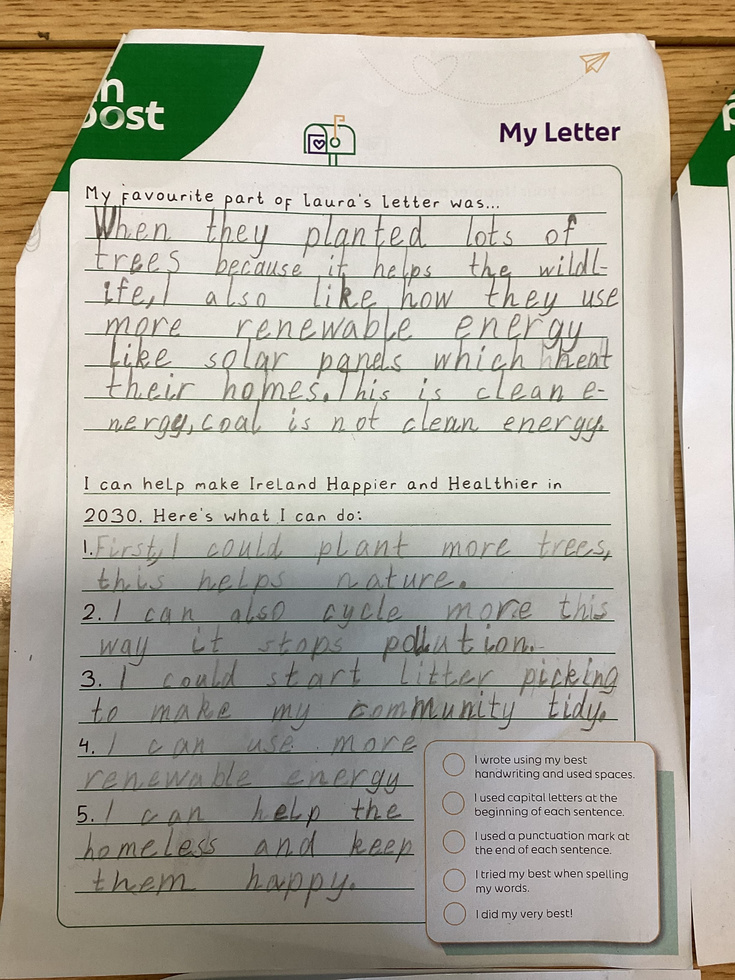 n
post
My Letter
My favourite part of Laura's letter was...
When they planted lots of
trees because it helps the wildl-
ife, I also like how they use
more renewable energy
Like solar panels which heat
their homes. This is clean e-
nergy, coal is not clean energy.
I can help make Ireland Happier and Healthier in
2030. Here's what I can do:
1. First, I could plant more trees,
this helps nature.
2. I can also cycle more this
way it stops pollution.
3. I could start litter picking
to make my community tidy.
4. I can use more
renewable energy
5. I can help the
homeless and keep
them happy.
I wrote using my best
handwriting and used spaces.
I used capital letters at the
beginning of each sentence.
I used a punctuation mark at
the end of each sentence.
I tried my best when spelling
my words.
I did my very best!